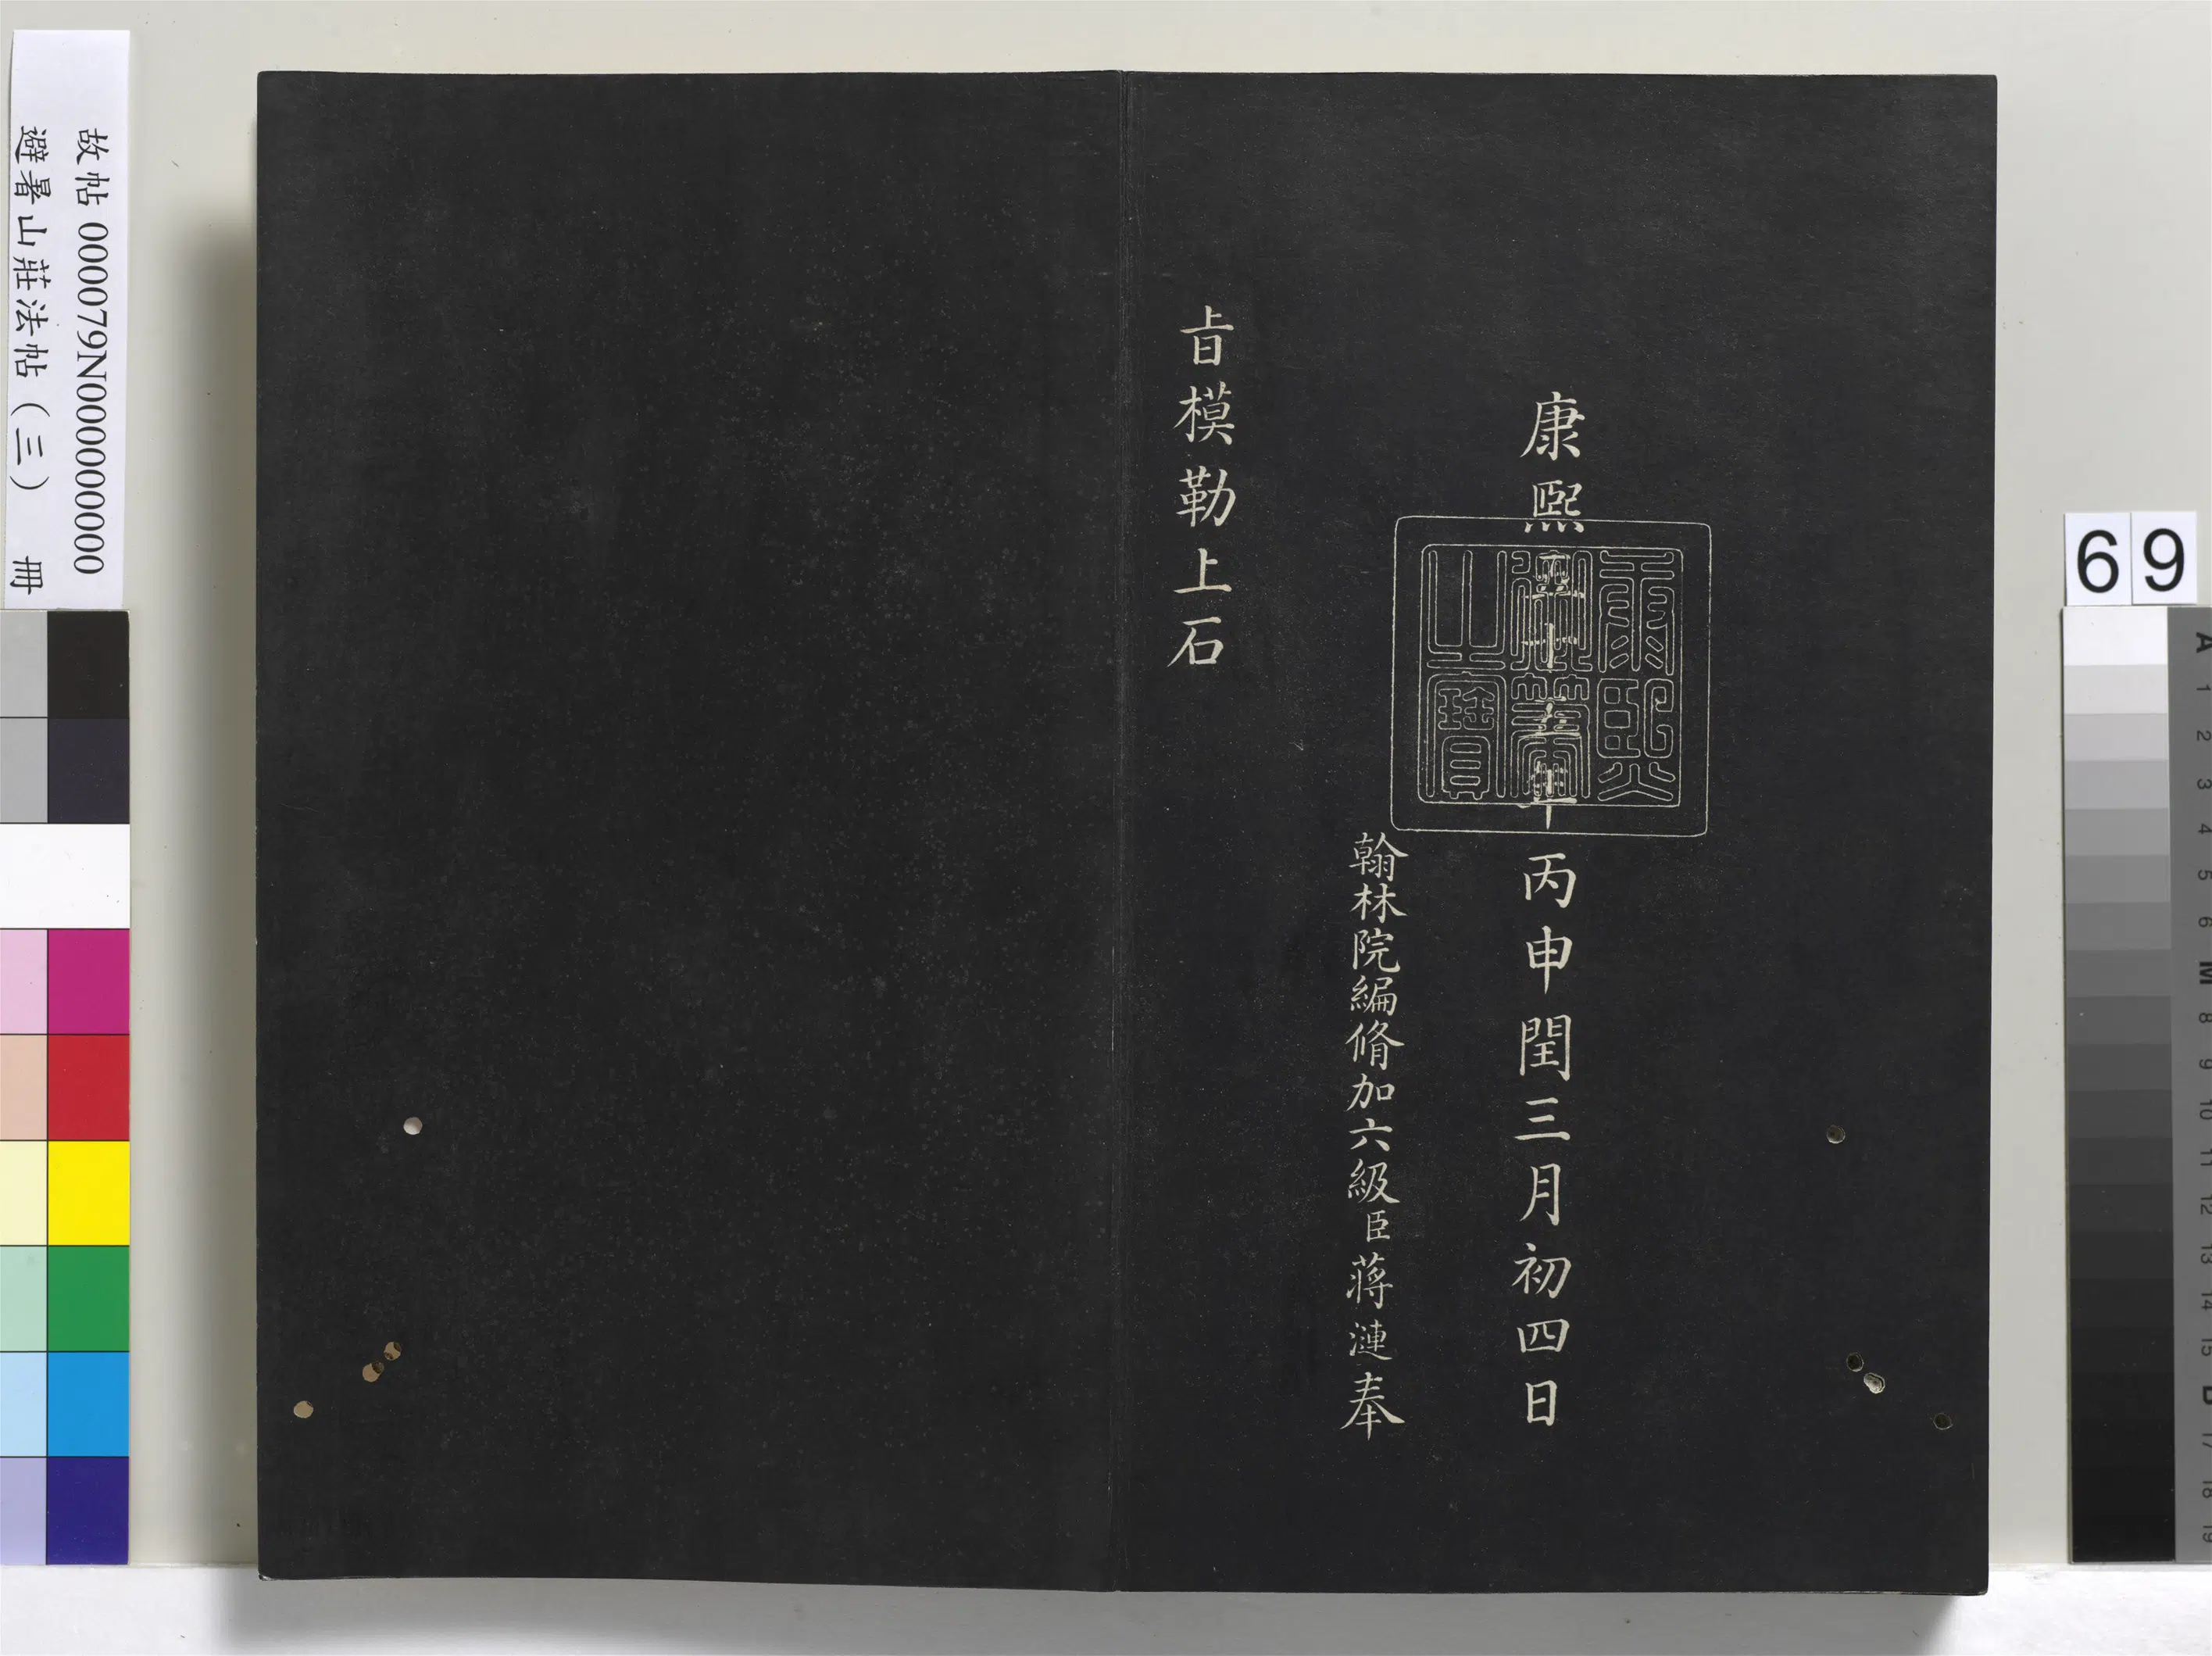 康熙五十五年丙申閏三月初四日
康熙
御筆
之寶
翰林院編脩加六級臣蔣漣奉
旨模勒上石
故帖 000079N000000000
避暑山莊法帖（三） 冊
69
A
1
2
3
4
5
6
M
8
9
10
11
12
13
14
15
B
17
18
19